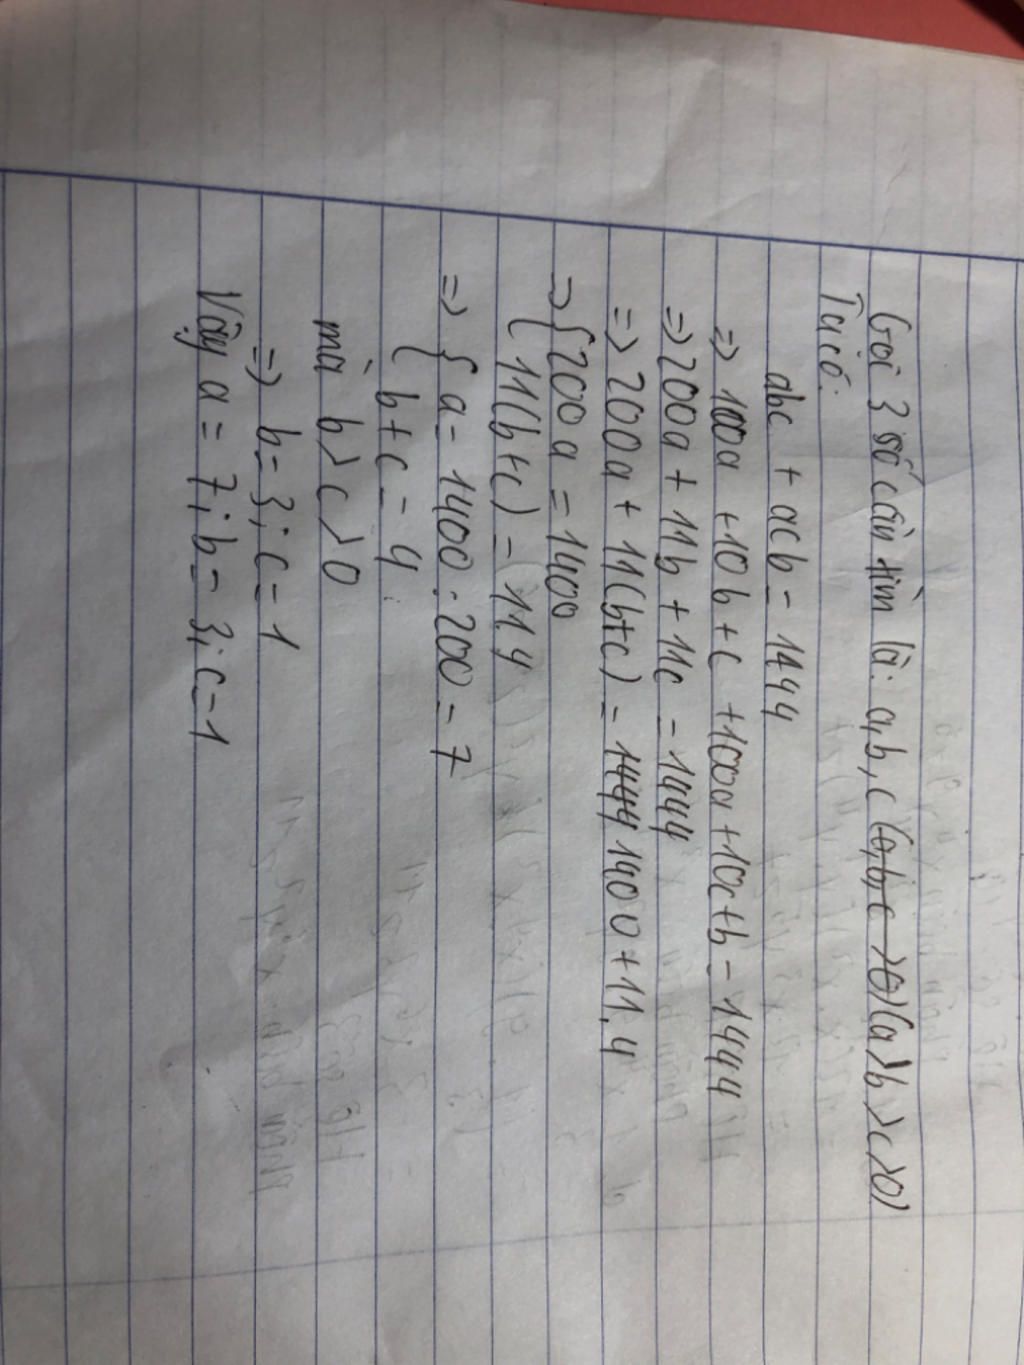 Gọi 3 số cần tìm là: a, b, c (a, b, c > 0) (a > b > c > 0)
Ta có:
abc + acb = 1444
=> 100a + 10b + c + 100a + 10c + b = 1444
=> 200a + 11b + 11c = 1444
=> 200a + 11(b+c) = 1444 1400 + 11.4
=> { 200a = 1400
{ 11(b+c) = 11.4
=> { a = 1400 : 200 = 7
{ b + c = 4
mà b > c > 0
=> b = 3; c = 1
Vậy a = 7; b = 3; c = 1